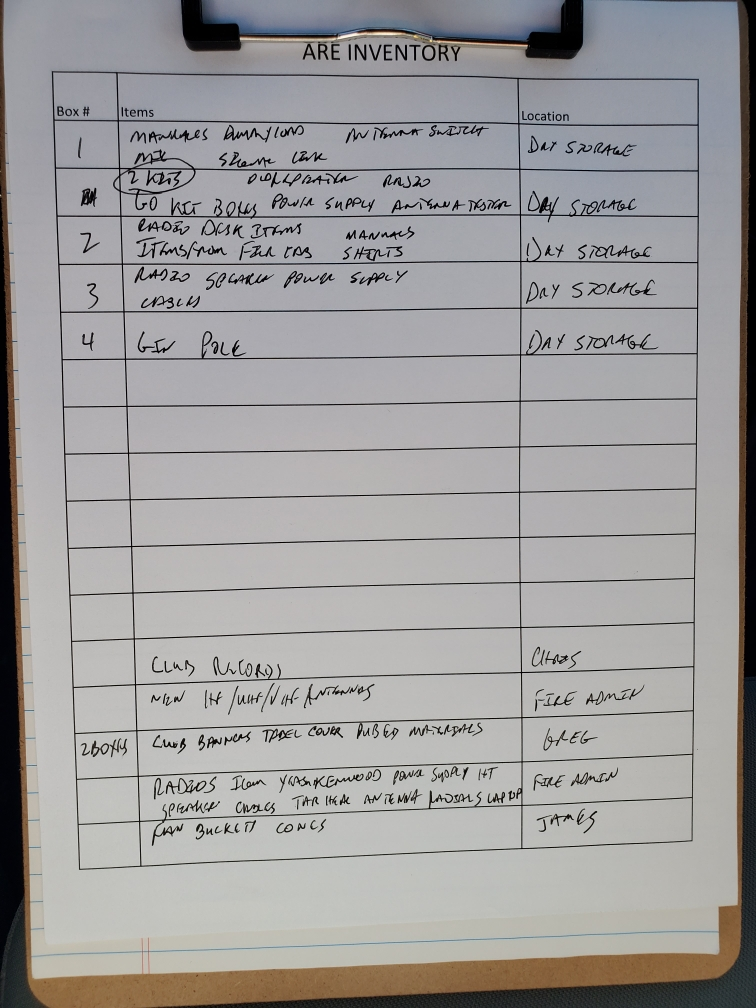 ARE INVENTORY
Box # Items Location
1 MANUALES DUMMY LOAD ANTENNA SWITCH DRY STORAGE
2 KITS RADIO
GO KIT BOXES POWER SUPPLY ANTENNA TESTER DRY STORAGE
2 RADIO DESK ITEMS MANUALS
ITEMS FROM FILE CAB SHIRTS DRY STORAGE
3 RADIO SPEAKER POWER SUPPLY
CABLES DRY STORAGE
4 GIN POLE DRY STORAGE
CLUB RECORDS CHRIS
NEW HF/UHF/VHF ANTENNAS FIRE ADMIN
2 BOXES CLUB BANNERS TABEL COVER PUB ED MATERIALS GREG
RADIOS ICOM YEASU KENWOOD POWER SUPPLY HT
SPEAKER CABLES TAR HEAL ANTENNA RADIALS LAPTOP FIRE ADMIN
FAN BUCKETS CONES JAMES